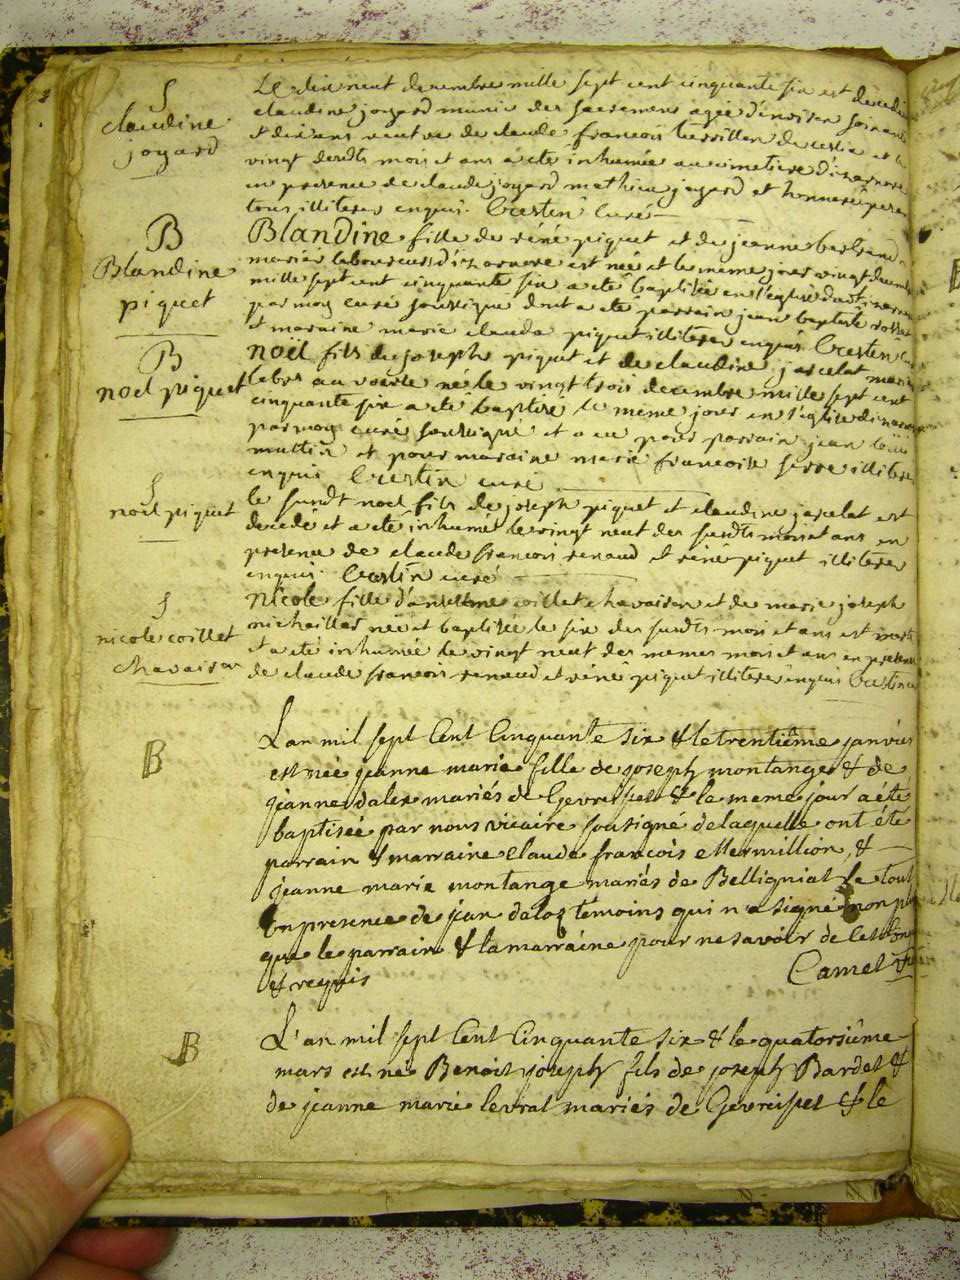 S
claudine
joyard
Le dix neuf decembre mille sept cent cinquante six est decedée
claudine joyard munie des sacremens agée d'environ soixante
et dix ans veuve de claude francois
vingt desdts mois et ans a eté inhumée au cimetiere d'izernore
en presence de claude joyard mathieu joyard et honnoré
tous illiteres enquis. Crestin curé
B
Blandine
piquet
Blandine fille de réné piquet et de jeanne bertrand
mariés laboureurs d'izernore est née et le meme jour vingt decembre
mille sept cent cinquante six a eté baptisée en l'eglise dudt izernore
par moy curé soussigné dont a eté parrain jean baptiste
et maraine marie claude piquet illiteres enquis. Crestin curé
B
noel piquet
noël fils de joseph piquet et de claudine jascelat mariés
labrs au né le vingt trois decembre mille sept cent
cinquante six a eté baptisé le meme jour en l'eglise dizernore
par moy curé soussigné et a eu pour parrain jean louis
mattin et pour maraine marie francoise serre illiteres
enquis Crestin curé
S
noel piquet
le susdt noel fils de joseph piquet et claudine jascelat est
decedé et a eté inhumé le vingt neuf des susdts mois et ans en
presence de claude francois renaud et réné piquet illiteres
enquis. Crestin curé
S
nicole coillet
chavaison
nicole fille d'anselme coillet chavaison et de marie joseph
michaillar née et baptisée le six des susdts mois et ans est morte
et a eté inhumée le vingt neuf des memes mois et ans en presence
de claude francois renaud et réné piquet illiteres enquis Crestin curé
B
L'an mil sept Cent Cinquante six & le trentième janvier
est née jeanne marie fille de joseph montange & de
jeanne dalex mariés de Gevreisset & le meme jour a été
baptisée par nous vicaire sousigné de laquelle ont été
parrain & marraine claude françois Mermillion, &
jeanne marie montange mariés de Belligniat le tout
En presence de jean daloz témoins qui n'a signé non plus
que le parrain & la marraine pour ne savoir de ce
& requis
Camel
B
L'an mil sept Cent Cinquante six & le quatorsième
mars est né Benoit joseph fils de joseph Bardet &
de jeanne marie levrat mariés de Gevreisset & le